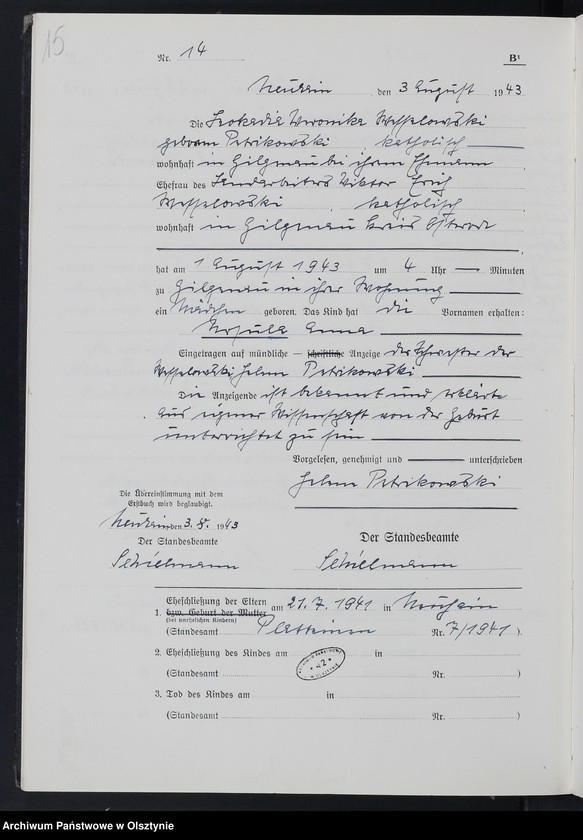 15
Nr. 14
B¹
den 3 August 1943
Die Leokadia Veronika Wesselowski
geboren Petrikowski, katholisch
wohnhaft in Gilgenau bei ihrem Ehemann
Ehefrau des Landarbeiters Viktor Erich
Wesselowski, katholisch
wohnhaft in Gilgenau Kreis Osterode
hat am 1 August 1943 um 4 Uhr — Minuten
zu Gilgenau in ihrer Wohnung
ein Mädchen geboren. Das Kind hat die Vornamen erhalten:
Ursula Anna
Eingetragen auf mündliche — schriftliche Anzeige der Schwester der
Wesselowski Helene Petrikowski
Die Anzeigende ist bekannt und erklärte
aus eigener Wissenschaft von der Geburt
unterrichtet zu sein
Vorgelesen, genehmigt und — unterschrieben
Helene Petrikowski
Die Übereinstimmung mit dem
Erstbuch wird beglaubigt.
den 3. 8. 1943
Der Standesbeamte
Der Standesbeamte
Eheschließung der Eltern am 21.7.1941 in
1. bzw. Geburt der Mutter
(bei unehelichen Kindern)
(Standesamt Nr. 7/1941 ).
2. Eheschließung des Kindes am in
(Standesamt Nr. )
42
3. Tod des Kindes am in
(Standesamt Nr. )
Archiwum Państwowe w Olsztynie